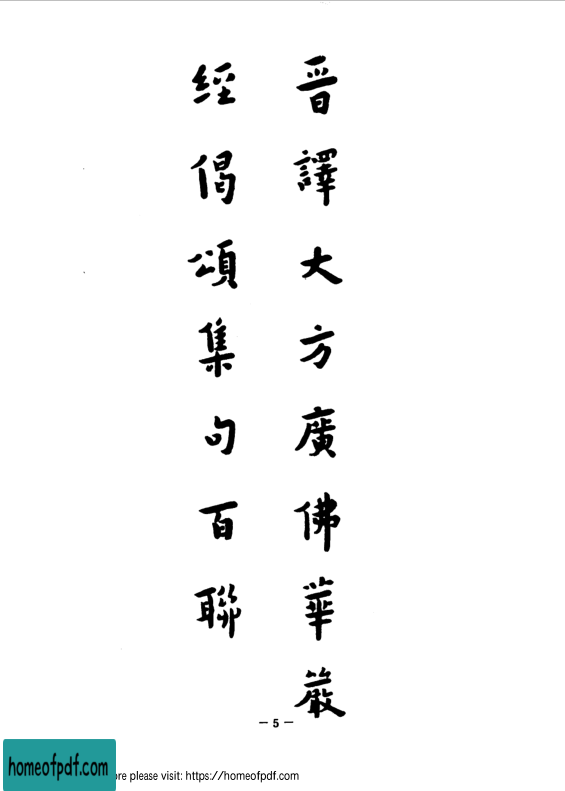 晉譯大方廣佛華嚴
經偈頌集句百聯
— 5 —
homeofpdf.com
re please visit: https://homeofpdf.com